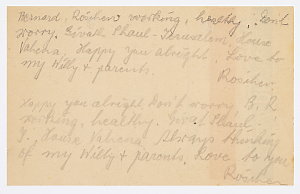 Bernard, Röschen working, healthy, Dont
worry, Givath Shaul - Jerusalem, House
Vahena. Happy you alright. Love to
my Willy + parents.
Röschen.
Happy you alright Don't worry B. R.
working, healthy. Givat Shaul
J. House Vahena Always thinking
of my Willy + parents. Love to you
Röschen